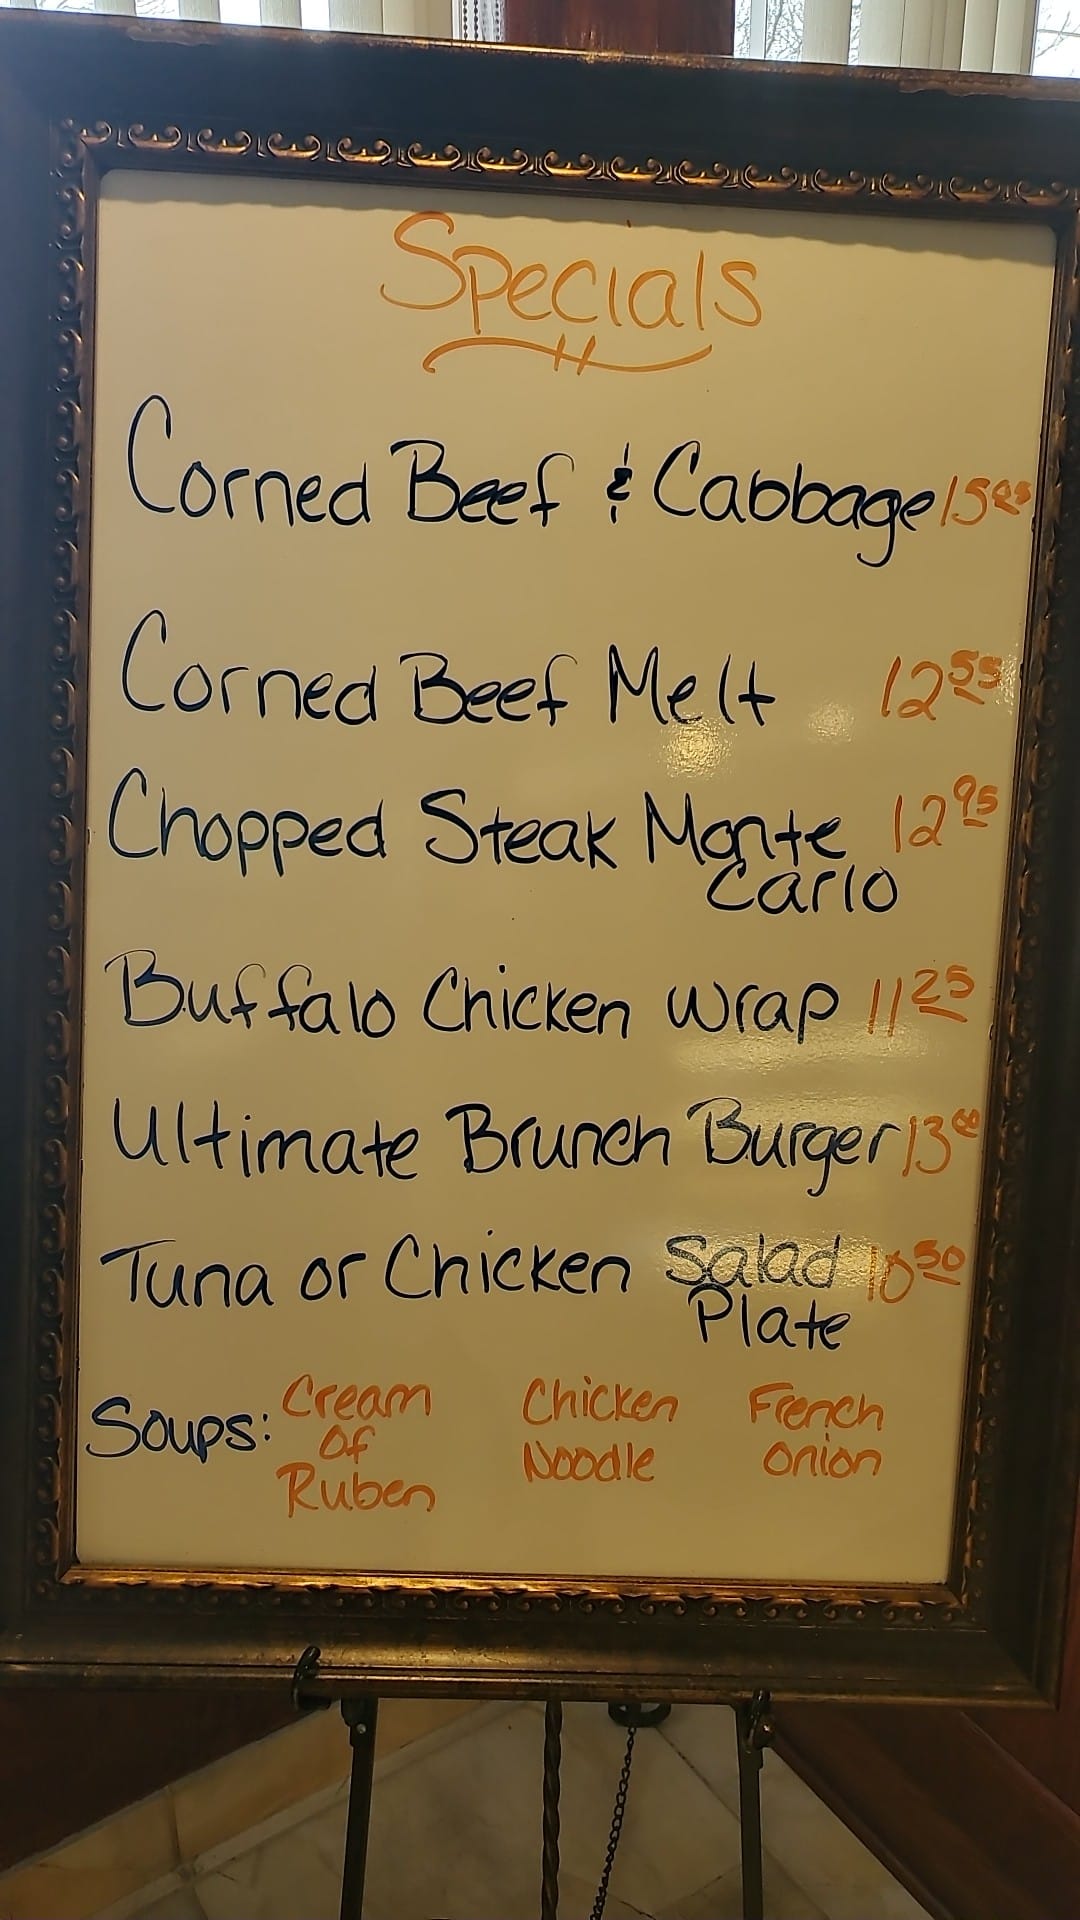 Specials
Corned Beef & Cabbage
Corned Beef Melt 12 55
Chopped Steak Monte 12 95
Carlo
Buffalo Chicken Wrap 11 25
Ultimate Brunch Burger 13 00
Tuna or Chicken Salad 10 50
Plate
Soups: Cream Chicken French
Of Noodle Onion
Ruben